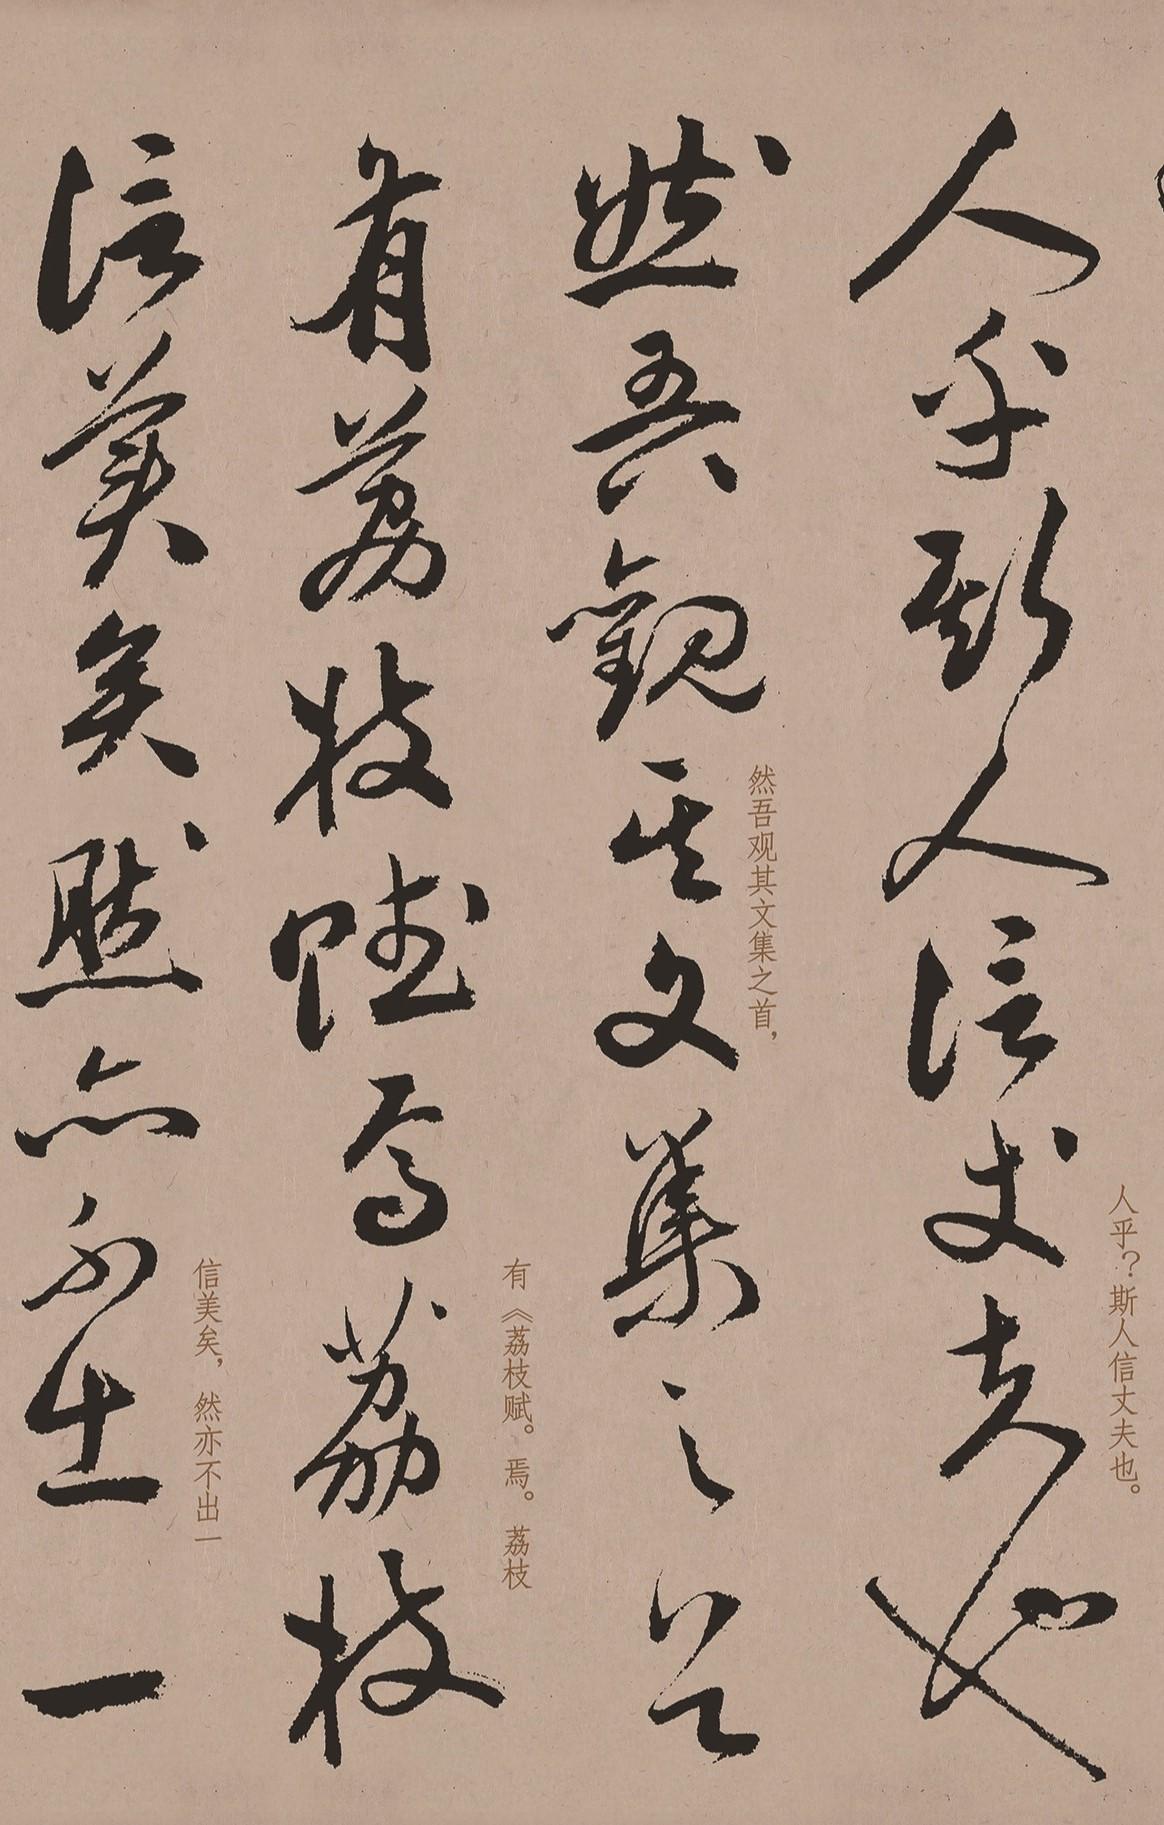 人乎斯人信丈夫也
人乎？斯人信丈夫也。
然吾觀其文集之首
然吾观其文集之首，
有荔枝賦焉荔枝
有《荔枝赋。焉。荔枝
信美矣然亦不出一
信美矣，然亦不出一